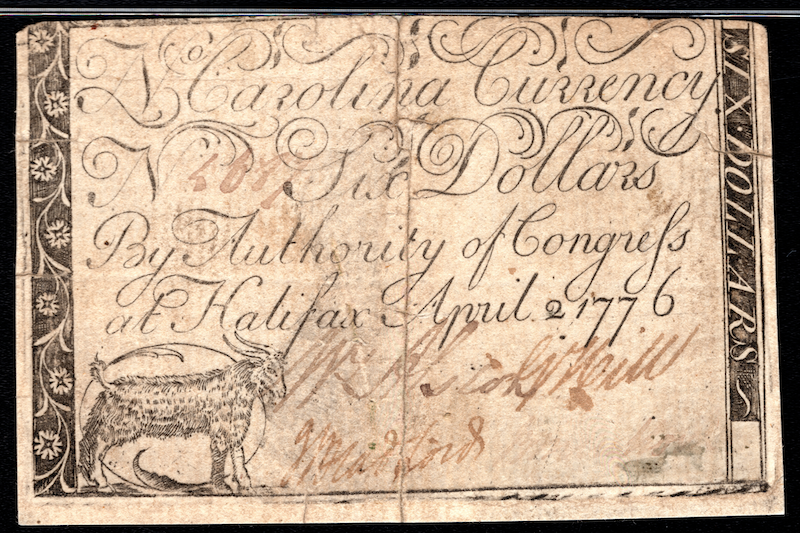 No Carolina Currency
No Six Dollars
By Authority of Congress
at Halifax April 2 1776
SIX DOLLARS